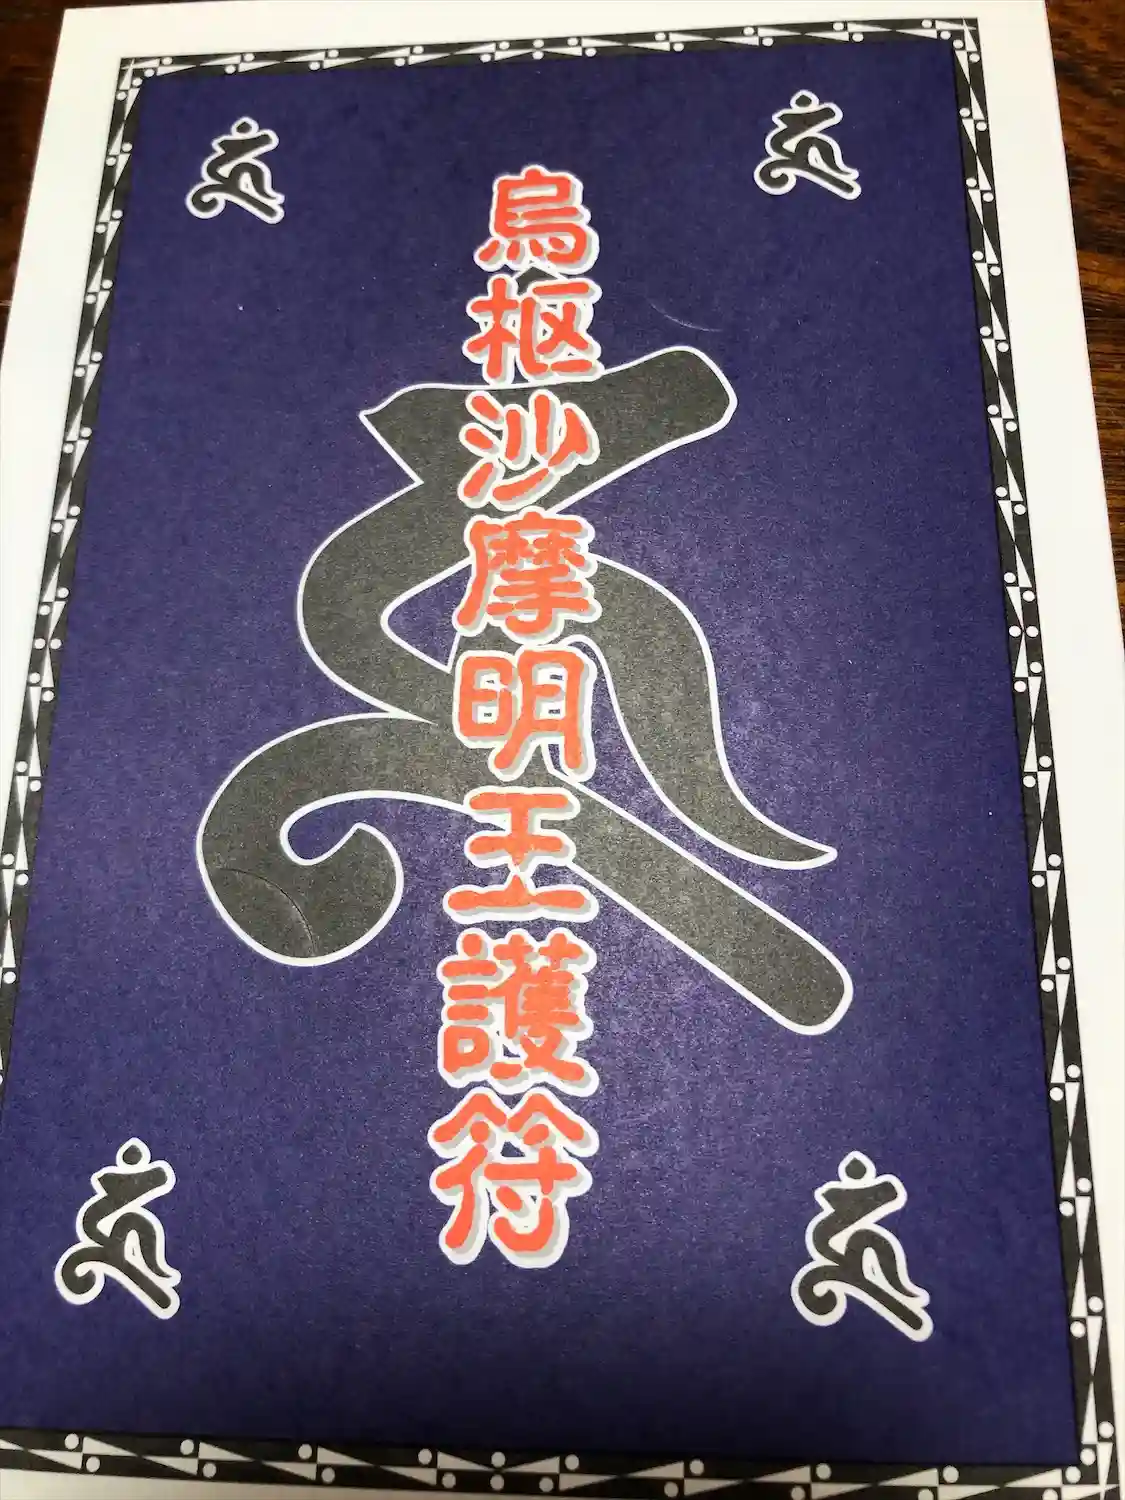 烏枢沙摩明王護符